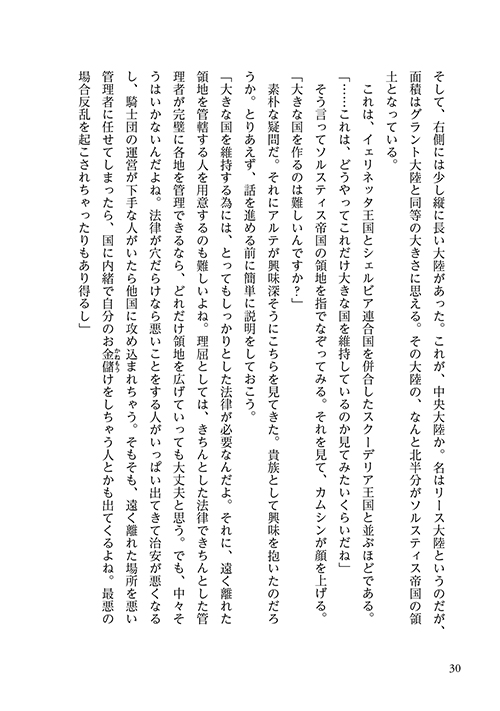 そして、右側には少し縦に長い大陸があった。これが、中央大陸か。名はリース大陸というのだが、
面積はグラント大陸と同等の大きさに思える。その大陸の、なんと北半分がソルスティス帝国の領
土となっている。
これは、イェリネッタ王国とシェルビア連合国を併合したスクーデリア王国と並ぶほどである。
「……これは、どうやってこれだけ大きな国を維持しているのか見てみたいくらいだね」
そう言ってソルスティス帝国の領地を指でなぞってみる。それを見て、カムシンが顔を上げる。
「大きな国を作るのは難しいんですか？」
素朴な疑問だ。それにアルテが興味深そうにこちらを見てきた。貴族として興味を抱いたのだろ
うか。とりあえず、話を進める前に簡単に説明をしておこう。
「大きな国を維持する為には、とってもしっかりとした法律が必要なんだよ。それに、遠く離れた
領地を管轄する人を用意するのも難しいよね。理屈としては、きちんとした法律できちんとした管
理者が完璧に各地を管理できるなら、どれだけ領地を広げていっても大丈夫と思う。でも、中々そ
うはいかないんだよね。法律が穴だらけなら悪いことをする人がいっぱい出てきて治安が悪くなる
し、騎士団の運営が下手な人がいたら他国に攻め込まれちゃう。そもそも、遠く離れた場所を悪い
管理者に任せてしまったら、国に内緒で自分のお金儲けをしちゃう人とかも出てくるよね。最悪の
かねもう
場合反乱を起こされちゃったりもあり得るし」
30